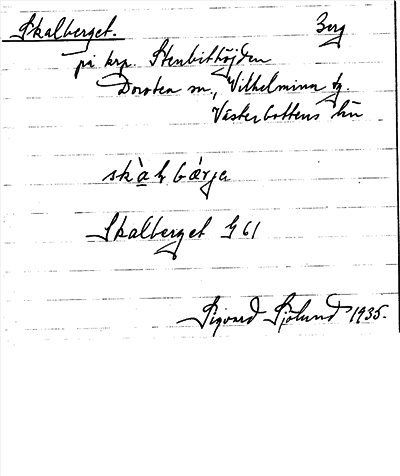 Skalberget. Berg
på krp. Stenbithöjden
Dorotea sn., Vilhelmina tg.
Västerbottens län
skàlbǽrjə
Skalberget G 61
Sigvard Sjölund 1935.